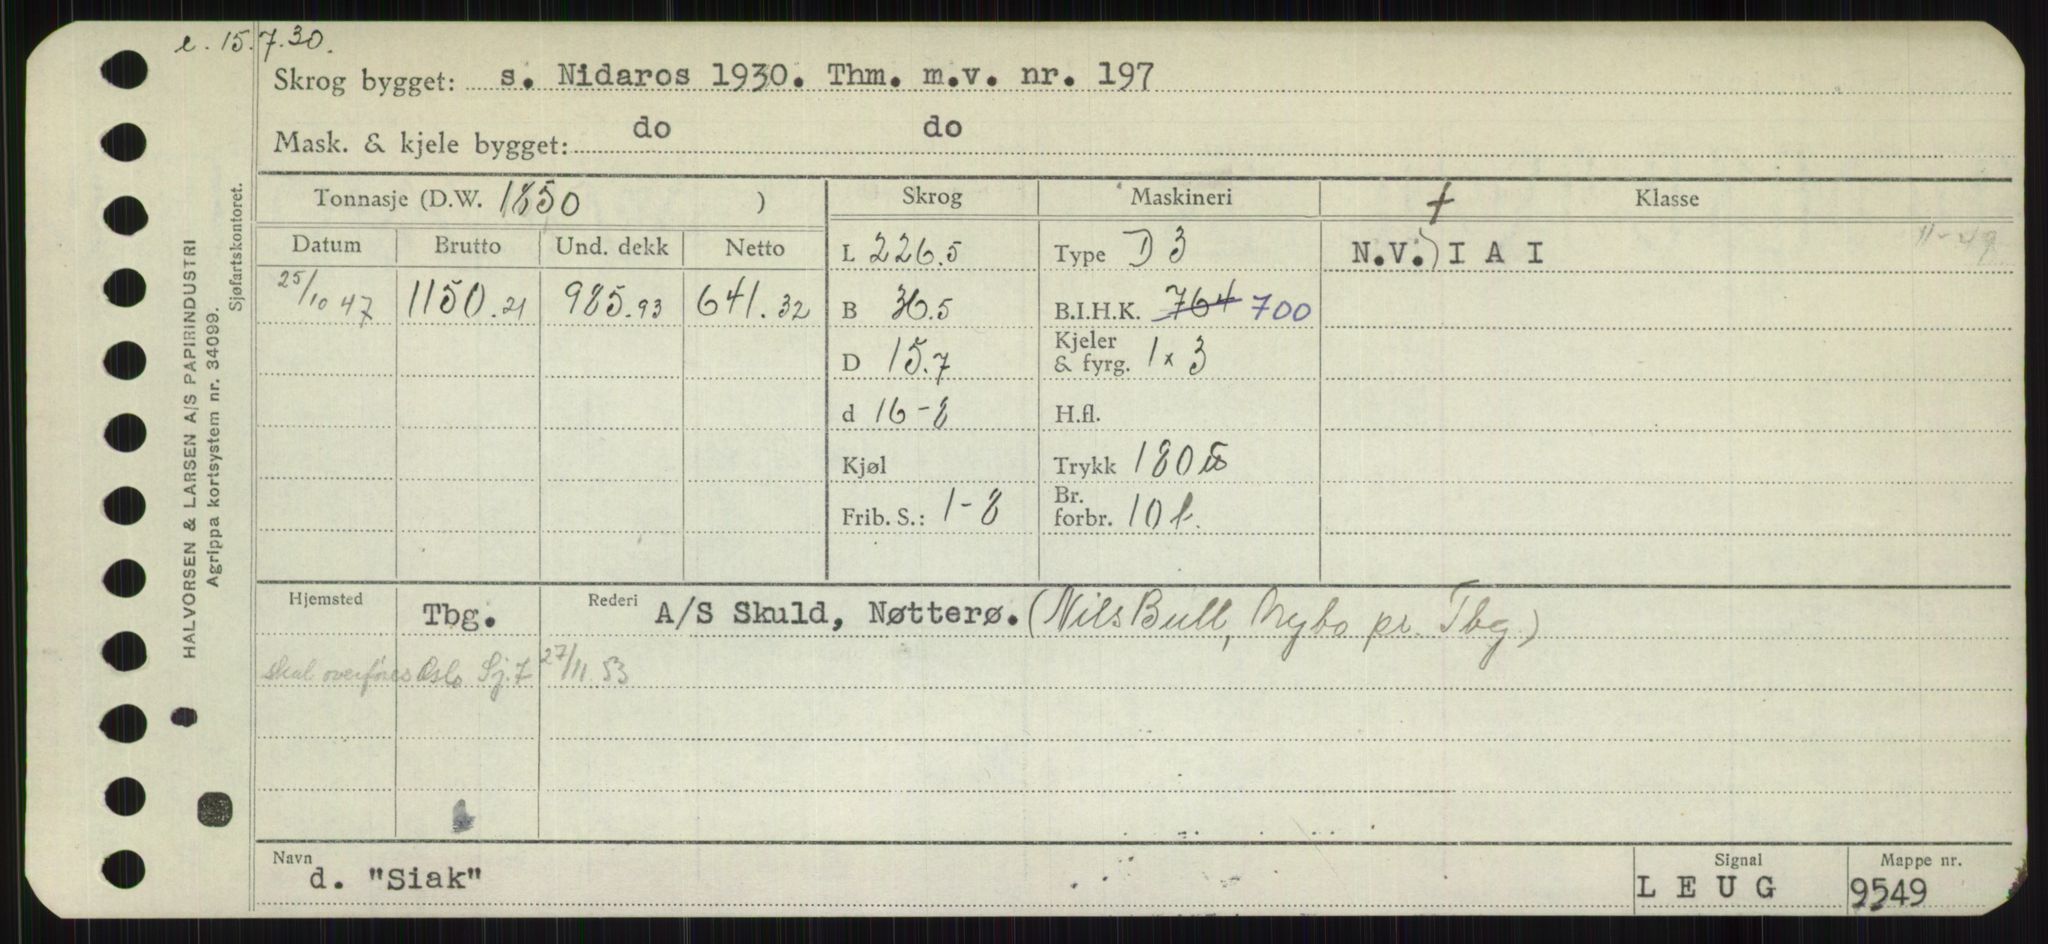 e. 15.7.30.
Skrog bygget: s. Nidaros 1930. Thm. m.v. nr. 197
Mask. & kjele bygget: do do
Tonnasje (D.W. 1850 ) Skrog Maskineri + Klasse
Datum Brutto Und. dekk Netto L 226.5 Type D 3 N.V.) I A I 11-49
25/10 47 1150.21 985.93 641.32 B 36.5 B.I.H.K. 764 700
D 15.7 Kjeler & fyrg. 1 x 3
d 16-8 H.fl.
Kjøl Trykk 180
Frib. S.: 1-8 Br. forbr. 10 t.
Hjemsted Tbg. Rederi A/S Skuld, Nøtterø. (Nils Bull, Nybo pr. Tbg)
Skal overføres Oslo Sj. 7 27/11. 53
Navn d. "Siak" Signal L E U G Mappe nr. 9549
HALVORSEN & LARSEN A/S PAPIRINDUSTRI
Agrippa kortsystem nr. 34099.
Sjøfartskontoret.